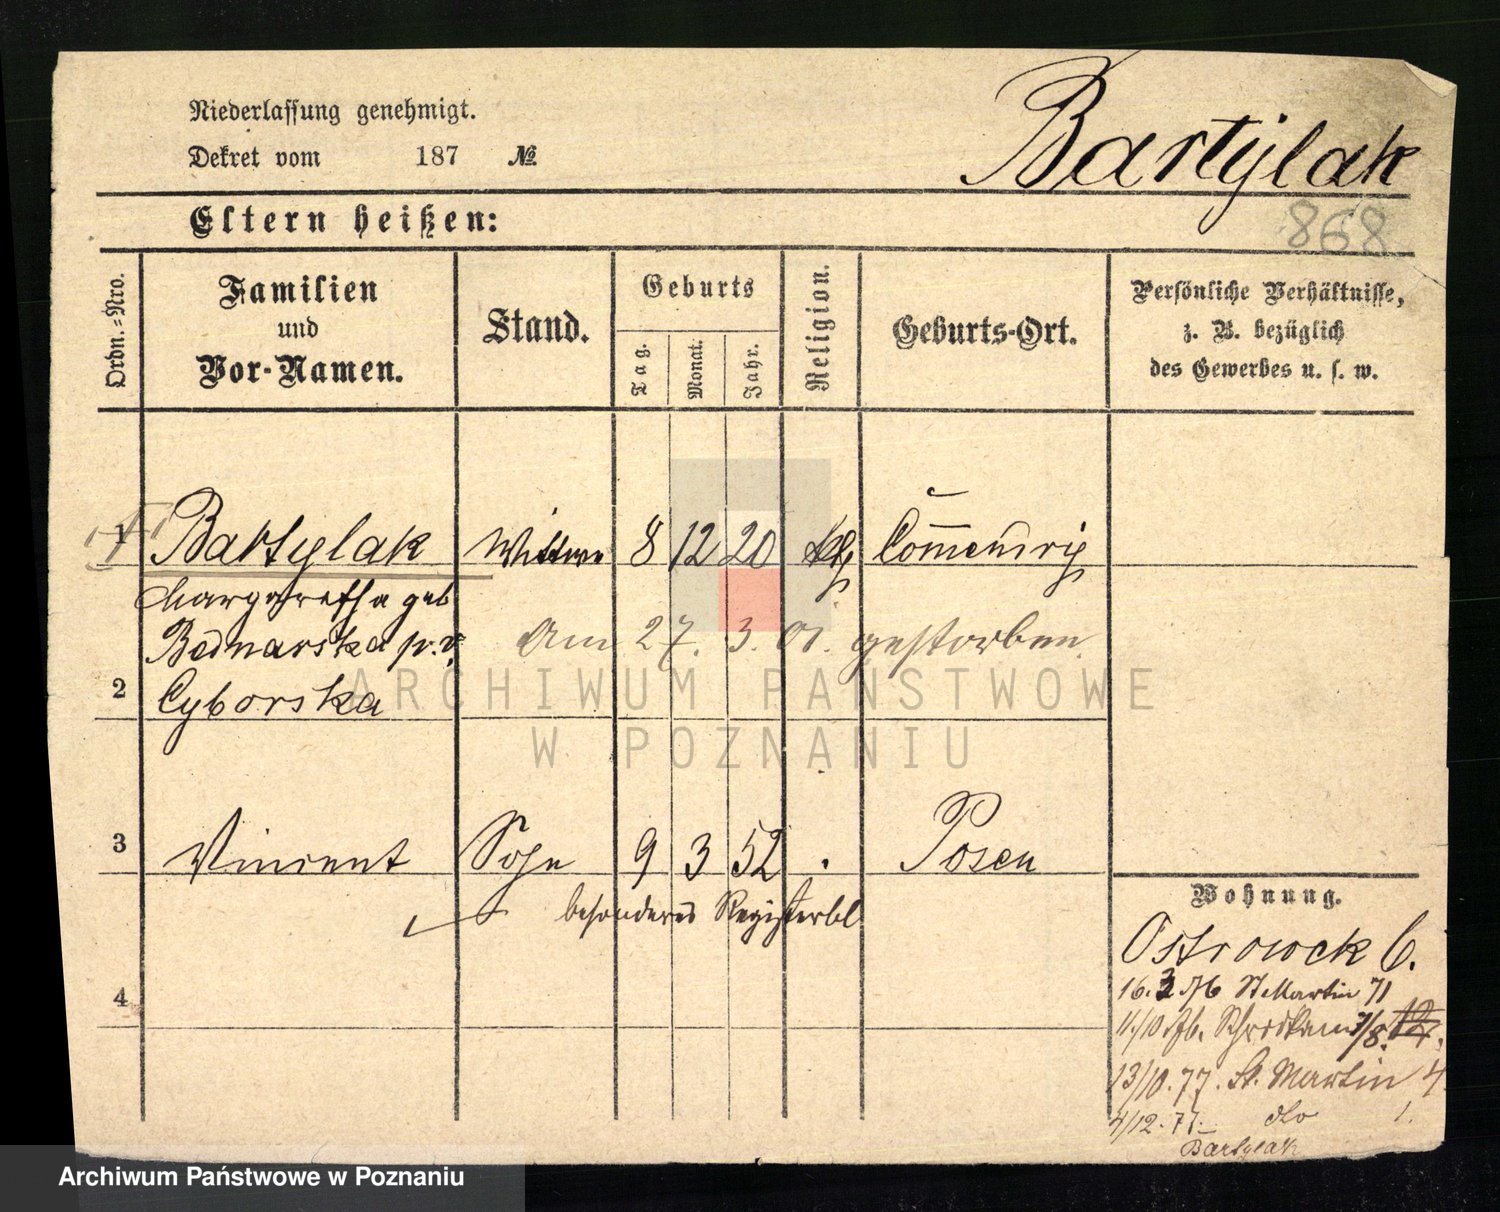 Niederlassung genehmigt.
Dekret vom 187 №
Bartylak
Eltern heißen:
868
Ordn.-Nro.
Familien
und
Vor-Namen.
Stand.
Geburts
Tag.
Monat.
Jahr.
Religion.
Geburts-Ort.
Persönliche Verhältnisse,
z. B. bezüglich
des Gewerbes u. s. w.
1 Bartylak Wittwe 8 12 20 kth
Margaretha geb
Bednarska p. v.
am 27. 3. 01. gestorben.
2 Cyborska
ARCHIWUM PAŃSTWOWE
W POZNANIU
3 Vincent Sohn 9 3 52 Posen
besonderes Registerbl
4
Wohnung.
Ostrowek 6.
16. 3 76 St Martin 71
11/10 76.
13/10. 77. St. Martin 4
4/12. 77. dto 1.
Bartylak
Archiwum Państwowe w Poznaniu